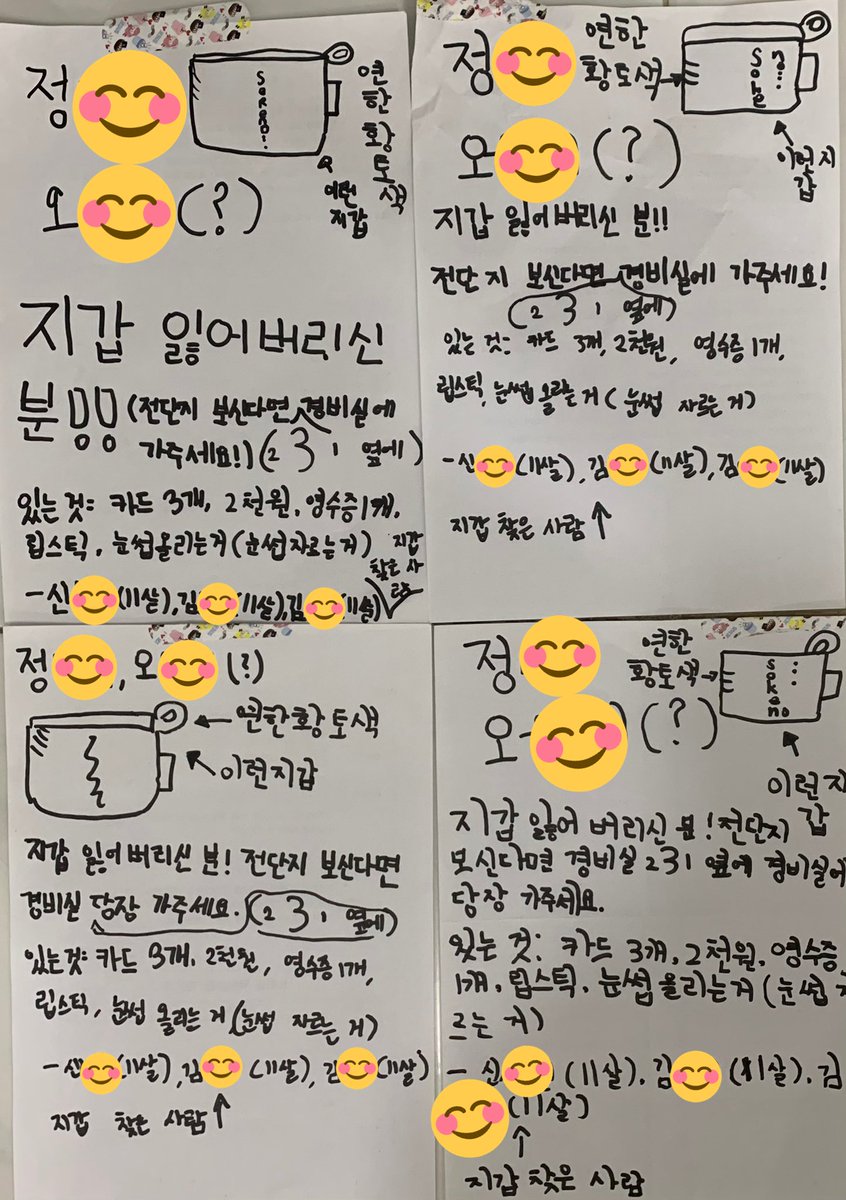 정
연한황토색
이런
지갑
오 (?)
지갑 잃어버리신
분!!(전단지 보신다면 경비실에
가주세요!)(231 옆에)
있는것: 카드 3개, 2천원, 영수증1개,
립스틱, 눈썹올리는거(눈썹자르는거)
지갑
찾은 사람
-신 (11살), 김 (11살), 김 (11살)
정 연한
황토색
이런지
갑
오 (?)
지갑 잃어버리신 분!!
전단지 보신다면 경비실에 가주세요!
(231 옆에)
있는 것: 카드 3개, 2천원, 영수증1개,
립스틱, 눈썹 올리는 거( 눈썹 자르는 거)
-신 (11살), 김 (11살), 김 (11살)
지갑 찾은 사람
정 , 오 (?)
연한황토색
이런지갑
지갑 잃어버리신 분! 전단지 보신다면
경비실 당장 가주세요. (231 옆에)
있는것: 카드 3개, 2천원, 영수증1개,
립스틱, 눈썹 올리는 거(눈썹 자르는 거)
-신 (11살), 김 (11살), 김 (11살)
지갑 찾은 사람
정 연한
황토색
오 (?)
이런지
갑
지갑 잃어버리신 분! 전단지
보신다면 경비실 231 옆에 경비실에
당장 가주세요.
있는 것: 카드 3개, 2천원, 영수증
1개, 립스틱, 눈썹 올리는거 (눈썹
르는 거)
- 신 (11살), 김 (11살), 김
(11살)
지갑 찾은 사람